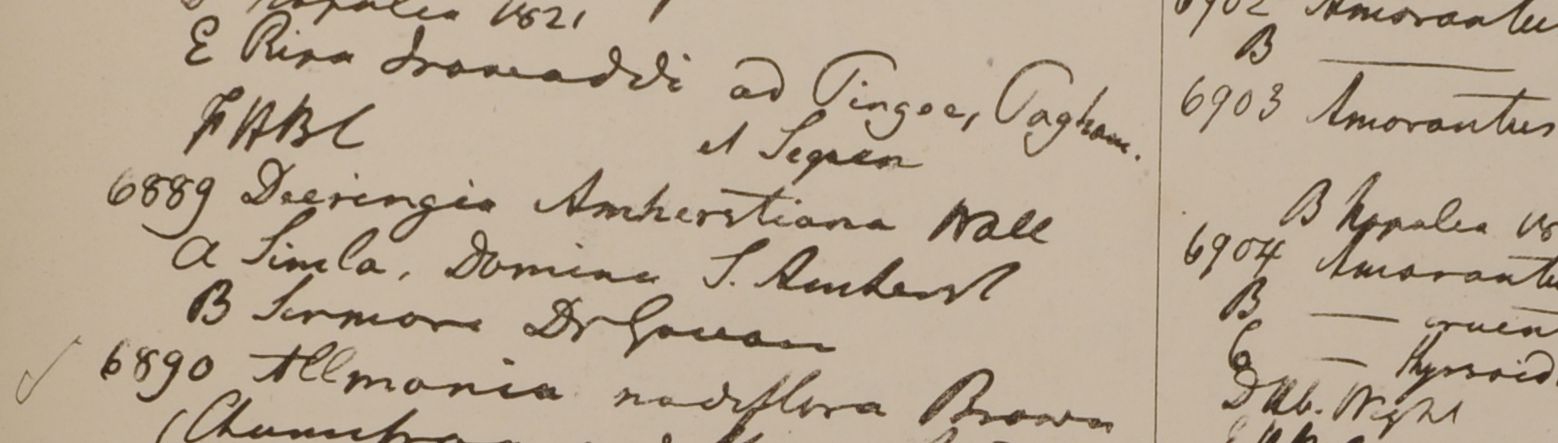 Napalea 1821
E Ripa Irawaddi ad Pingee, Pagham.
et Segaen
F HBC
6889 Deeringia Amherstiana Wall
a Simla, Domina S. Amherst
B Sirmore Dr Govan
6890 Allmania nodiflora Brown
6902 Amarantus
B —
6903 Amarantus
B Napalea
6904 Amarantu
B — cruen
C — thyrsoid
D Hb. Wight